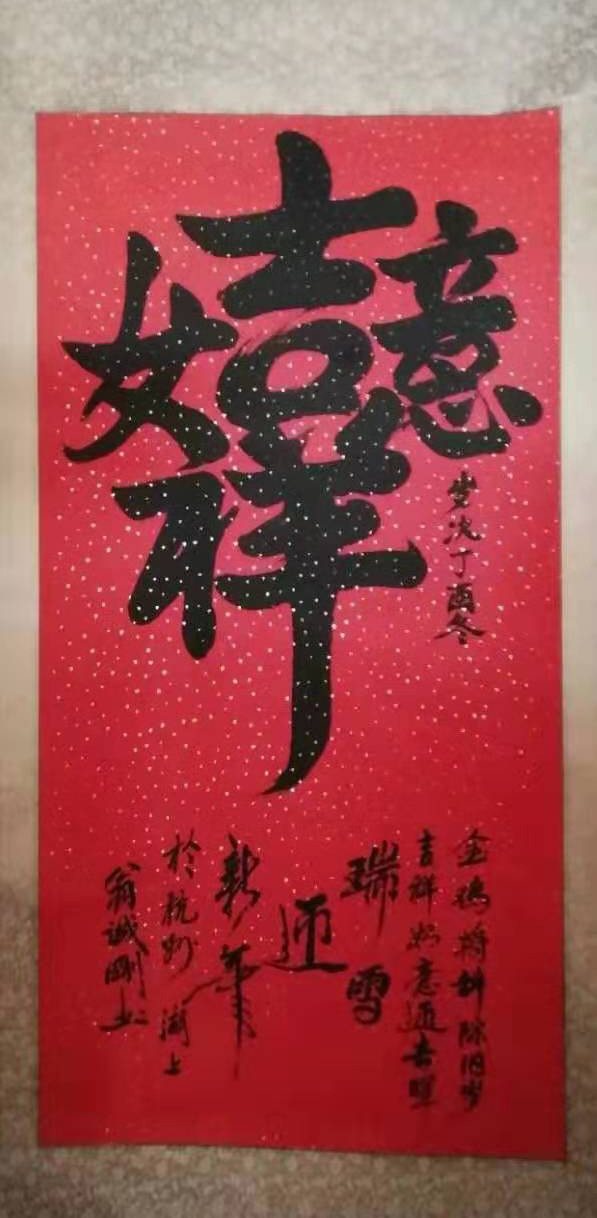 吉祥如意
岁次丁酉冬
金鸡将辞除旧岁
吉祥如意迎吉
瑞雪
迎
新年
於杭州湖上
翁诚刚书